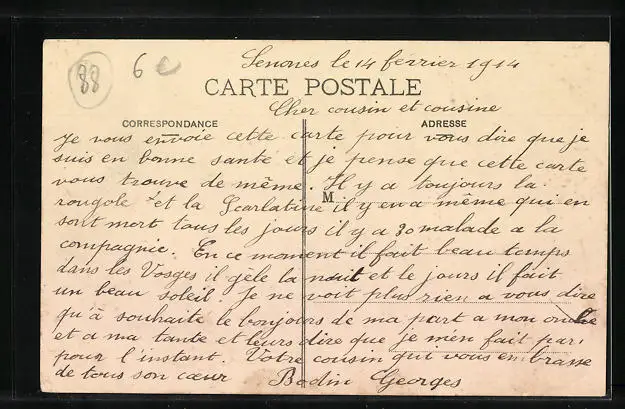 88
6€
Senones le 14 février 1914
CARTE POSTALE
Cher cousin et cousine
CORRESPONDANCE
ADRESSE
M
Je vous envoie cette carte pour vous dire que je
suis en bonne santé et je pense que cette carte
vous trouve de même. Il y a toujours la
rougole et la Scarlatine il y en a même qui en
sont mort tous les jours il y a 30 malade a la
compagnie. En ce moment il fait beau temps
dans les Vosges il gèle la nuit et le jours il fait
un beau soleil. Je ne voit plus rien a vous dire
qu'à souhaite le bonjours de ma part a mon oncle
et a ma tante et leurs dire que je m'en fait pas
pour l'instant. Votre cousin qui vous embrasse
de tous son cœur Bodin Georges